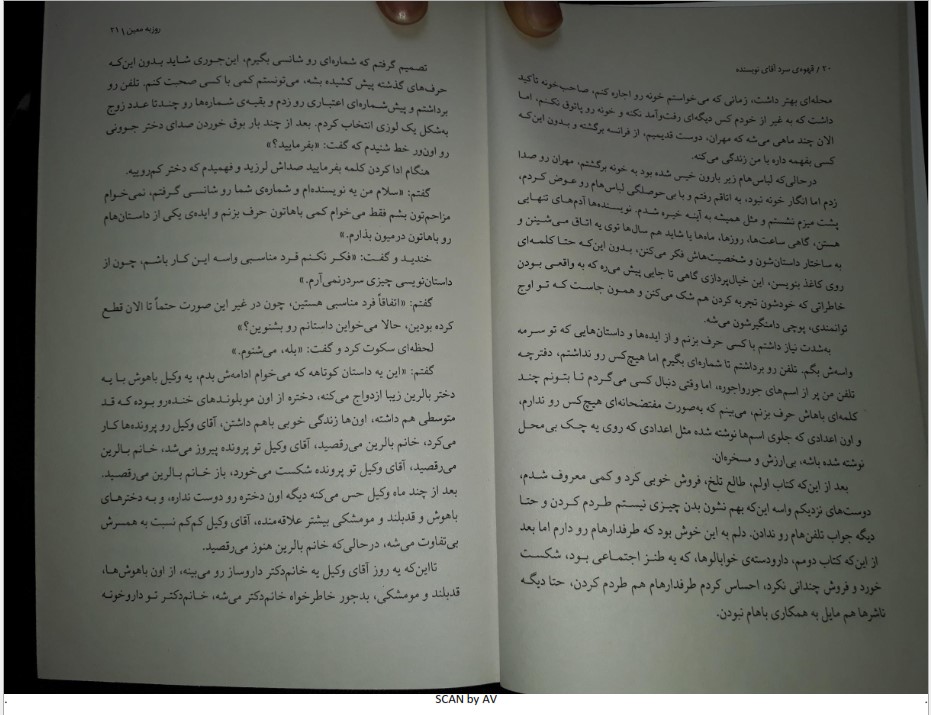 ۲۰ / قهوه‌ی سرد آقای نویسنده
محله‌ای بهتر داشت، زمانی که می‌خواستم خونه رو اجاره کنم، صاحب‌خونه تأکید
داشت که به غیر از خودم کس دیگه‌ای رفت‌وآمد نکنه و خونه رو پاتوق نکنم، اما
الان چند ماهی می‌شه که مهران، دوست قدیمیم، از فرانسه برگشته و بدون این‌که
کسی بفهمه داره با من زندگی می‌کنه.
درحالی‌که لباس‌هام زیر بارون خیس شده بود به خونه برگشتم، مهران رو صدا
زدم اما انگار خونه نبود، به اتاقم رفتم و با بی‌حوصلگی لباس‌هام رو عوض کردم،
پشت میزم نشستم و مثل همیشه به آینه خیره شدم. نویسنده‌ها آدم‌های تنهایی
هستن، گاهی ساعت‌ها، روزها، ماه‌ها یا شاید هم سال‌ها توی یه اتاق می‌شینن و
به ساختار داستان‌شون و شخصیت‌هاش فکر می‌کنن، بدون این‌که حتا کلمه‌ای
روی کاغذ بنویسن، این خیال‌پردازی گاهی تا جایی پیش می‌ره که به واقعی بودن
خاطراتی که خودشون تجربه کردن هم شک می‌کنن و همون جاست که تو اوج
توانمندی، پوچی دامنگیرشون می‌شه.
به‌شدت نیاز داشتم با کسی حرف بزنم و از ایده‌ها و داستان‌هایی که تو سرمه
واسه‌ش بگم. تلفن رو برداشتم تا شماره‌ای بگیرم اما هیچ‌کس رو نداشتم، دفترچه
تلفن من پر از اسم‌های جورواجوره، اما وقتی دنبال کسی می‌گردم تا بتونم چند
کلمه‌ای باهاش حرف بزنم، می‌بینم که به‌صورت مفتضحانه‌ای هیچ‌کس رو ندارم،
و اون اعدادی که جلوی اسم‌ها نوشته شده مثل اعدادی که روی یه چک بی‌محل
نوشته شده باشه، بی‌ارزش و مسخره‌ان.
بعد از این‌که کتاب اولم، طالع تلخ، فروش خوبی کرد و کمی معروف شدم،
دوست‌های نزدیکم واسه این‌که بهم نشون بدن چیزی نیستم طردم کردن و حتا
دیگه جواب تلفن‌هام رو ندادن. دلم به این خوش بود که طرفدارهام رو دارم اما بعد
از این‌که کتاب دومم، دارودسته‌ی خوابالوها، که یه طنز اجتماعی بود، شکست
خورد و فروش چندانی نکرد، احساس کردم طرفدارهام هم طردم کردن، حتا دیگه
ناشرها هم مایل به همکاری باهام نبودن.
روزبه معین \ ۲۱
تصمیم گرفتم که شماره‌ای رو شانسی بگیرم، این‌جوری شاید بدون این‌که
حرف‌های گذشته پیش کشیده بشه، می‌تونستم کمی با کسی صحبت کنم. تلفن رو
برداشتم و پیش‌شماره‌ای اعتباری رو زدم و بقیه‌ی شماره‌ها رو چندتا عدد زوج
به‌شکل یک لوزی انتخاب کردم. بعد از چند بار بوق خوردن صدای دختر جوونی
رو اون‌ور خط شنیدم که گفت: «بفرمایید؟»
هنگام ادا کردن کلمه بفرمایید صداش لرزید و فهمیدم که دختر کم‌روییه.
گفتم: «سلام من یه نویسنده‌ام و شماره‌ی شما رو شانسی گرفتم، نمی‌خوام
مزاحم‌تون بشم فقط می‌خوام کمی باهاتون حرف بزنم و ایده‌ی یکی از داستان‌هام
رو باهاتون درمیون بذارم.»
خندید و گفت: «فکر نکنم فرد مناسبی واسه این کار باشم، چون از
داستان‌نویسی چیزی سردرنمی‌آرم.»
گفتم: «اتفاقاً فرد مناسبی هستین، چون در غیر این صورت حتماً تا الان قطع
کرده بودین، حالا می‌خواین داستانم رو بشنوین؟»
لحظه‌ای سکوت کرد و گفت: «بله، می‌شنوم.»
گفتم: «این یه داستان کوتاهه که می‌خوام ادامه‌ش بدم، یه وکیل باهوش با یه
دختر بالرین زیبا ازدواج می‌کنه، دختره از اون موبلوندهای خنده‌رو بوده که قد
متوسطی هم داشته، اون‌ها زندگی خوبی باهم داشتن، آقای وکیل رو پرونده‌ها کار
می‌کرد، خانم بالرین می‌رقصید، آقای وکیل تو پرونده پیروز می‌شد، خانم بالرین
می‌رقصید، آقای وکیل تو پرونده شکست می‌خورد، باز خانم بالرین می‌رقصید.
بعد از چند ماه وکیل حس می‌کنه دیگه اون دختره رو دوست نداره، و به دخترهای
باهوش و قدبلند و مومشکی بیشتر علاقه‌منده، آقای وکیل کم‌کم نسبت به همسرش
بی‌تفاوت می‌شه، درحالی‌که خانم بالرین هنوز می‌رقصید.
تااین‌که یه روز آقای وکیل یه خانم‌دکتر داروساز رو می‌بینه، از اون باهوش‌ها،
قدبلند و مومشکی، بدجور خاطرخواه خانم‌دکتر می‌شه، خانم‌دکتر تو داروخونه
SCAN by AV